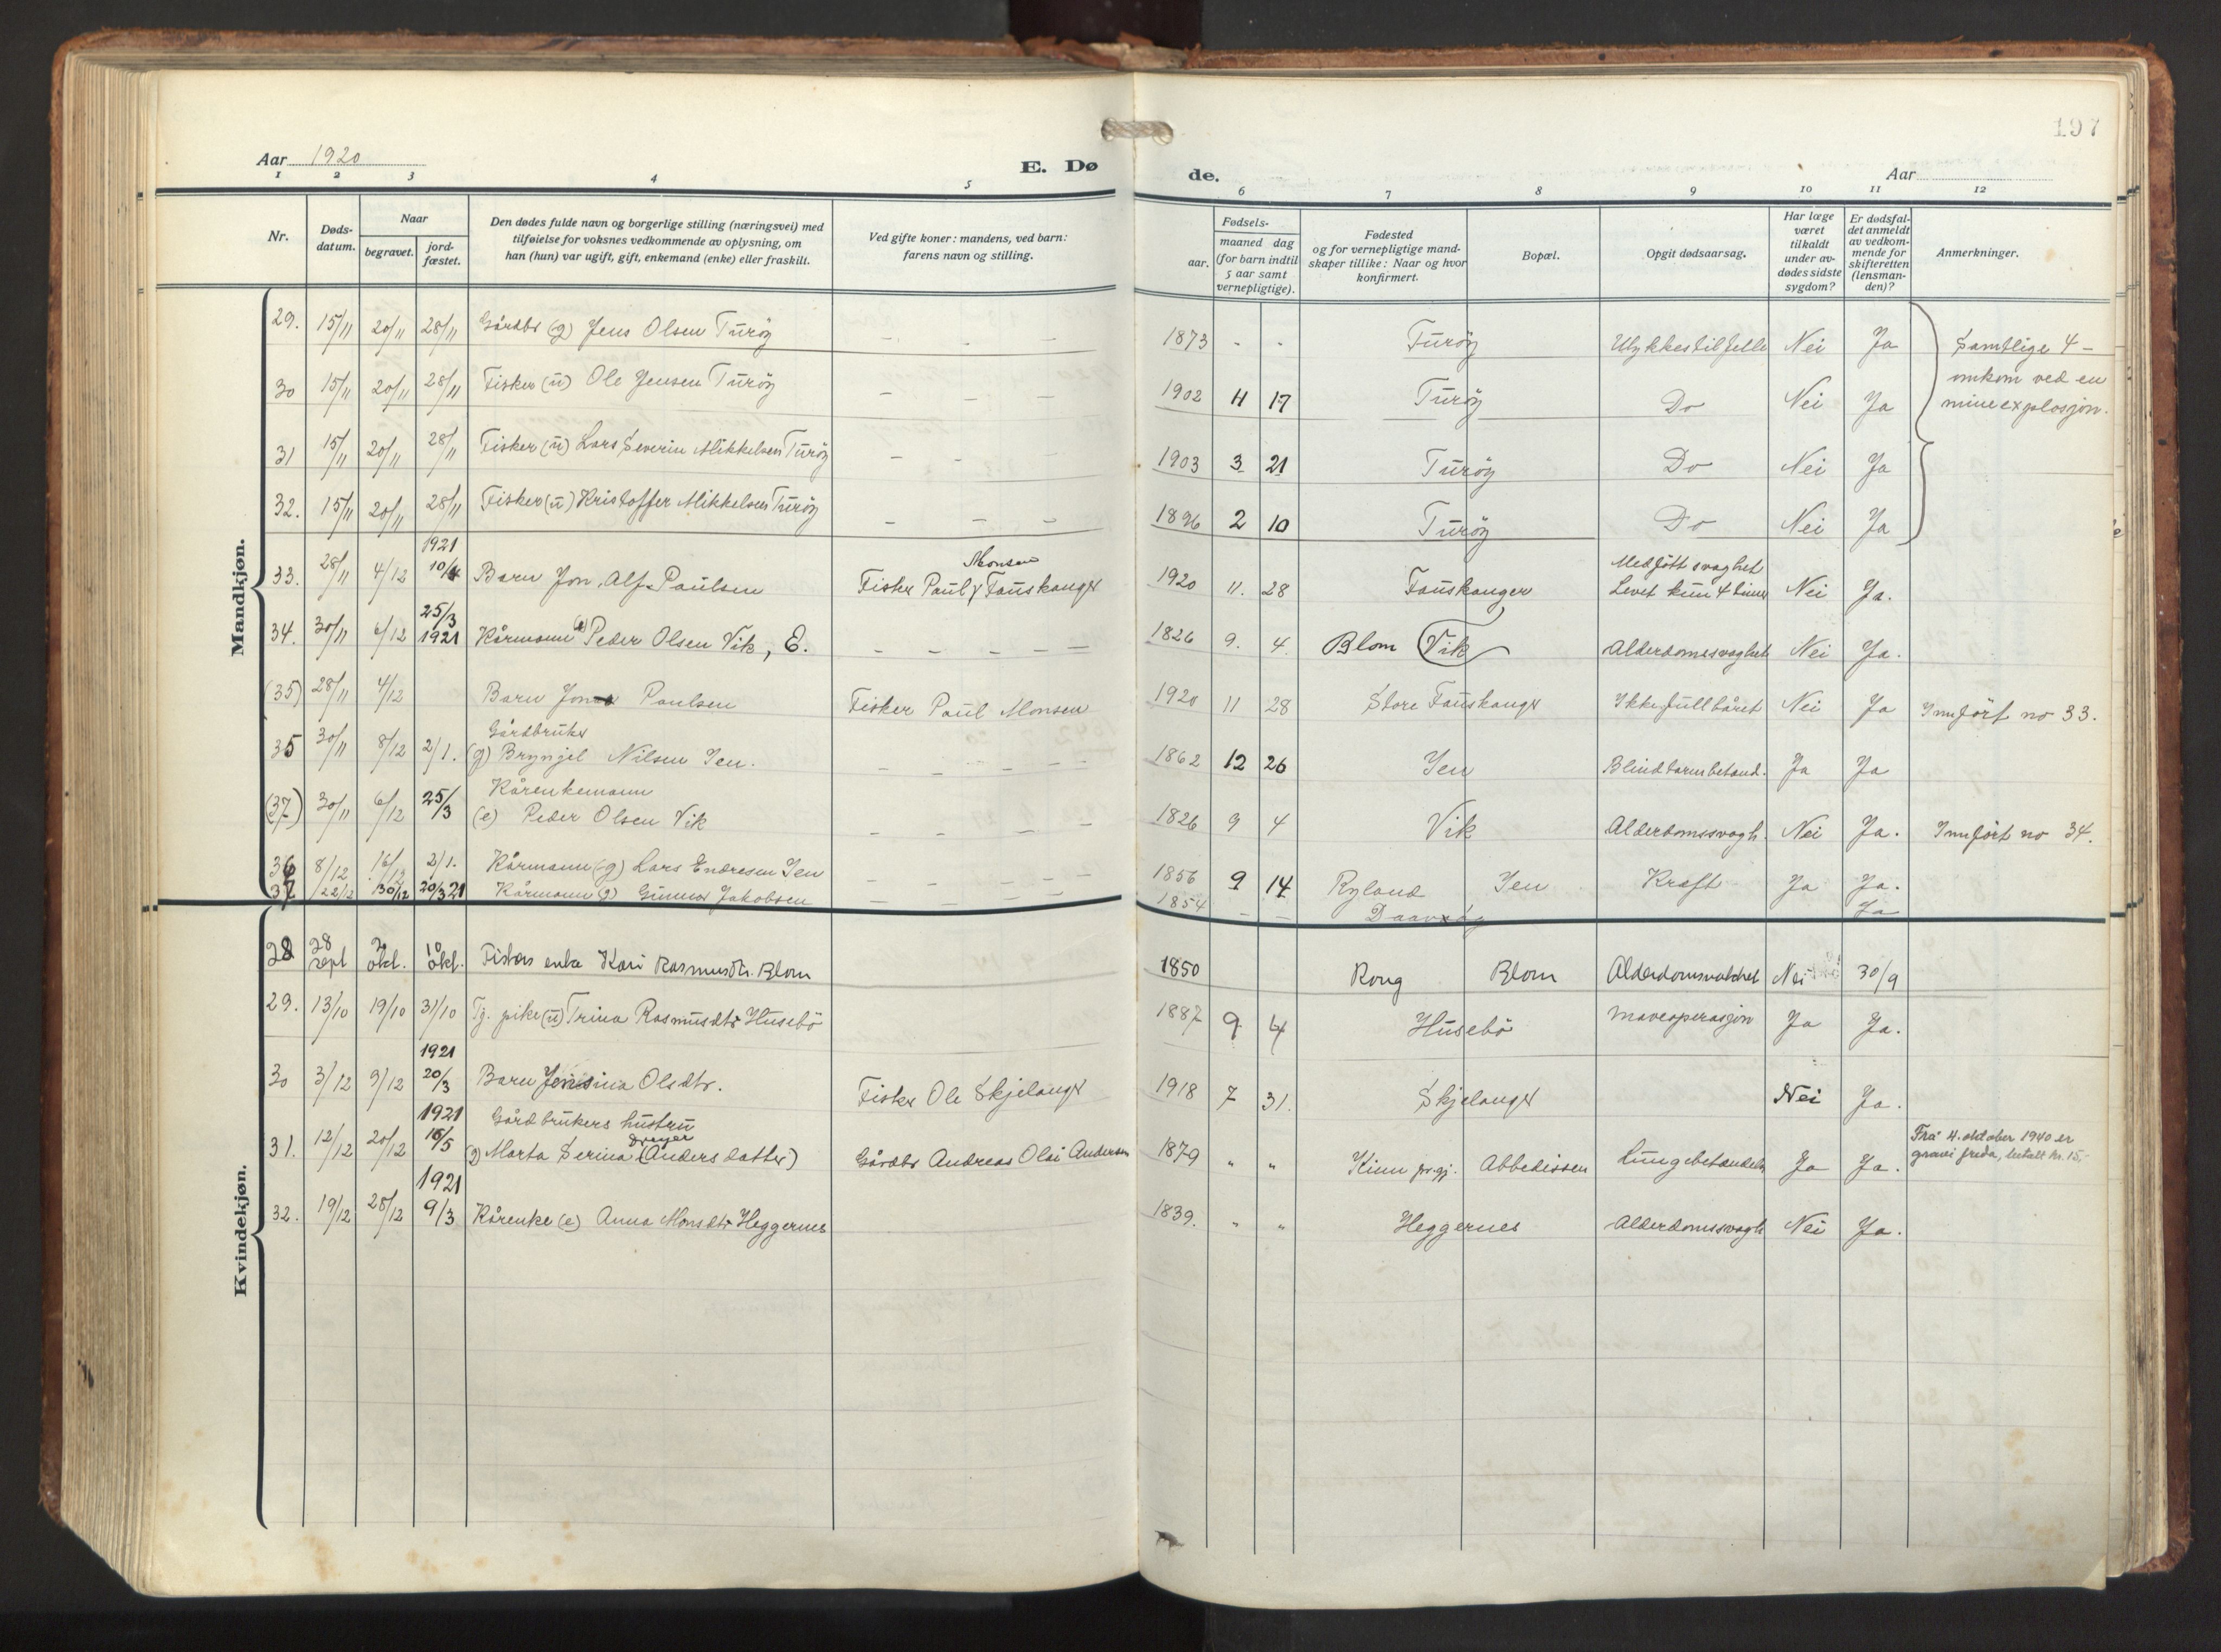 197
Aar 1920
E. Dø
de.
Aar
1 2 3 4 5 6 7 8 9 10 11 12
Nr.
Døds-
datum.
Naar
begravet.
jord-
fæstet.
Den dødes fulde navn og borgerlige stilling (næringsvei) med
tilføielse for voksnes vedkommende av oplysning, om
han (hun) var ugift, gift, enkemand (enke) eller fraskilt.
Ved gifte koner: mandens, ved barn:
farens navn og stilling.
Fødsels-
aar.
maaned dag
(for barn indtil
5 aar samt
vernepligtige).
Fødested
og for vernepligtige mand-
skaper tillike: Naar og hvor
konfirmert.
Bopæl.
Opgit dødsaarsag.
Har læge
været
tilkaldt
under av-
dødes sidste
sygdom?
Er dødsfal-
det anmeldt
av vedkom-
mende for
skifteretten
(lensman-
den)?
Anmerkninger.
Mandkjøn.
29. 15/11 20/11 28/11 Gårdbr (g) Jens Olsen Turöy - - - 1873 - - Turöy Ulykkestilfelle Nei Ja Samtlige 4 -
omkom ved en
mineexplosjon.
30 15/11 20/11 28/11 Fisker (u) Ole Jensen Turöy - - - 1902 4 17 Turöy Do Nei Ja
31 15/11 20/11 28/11 Fisker (u) Lars Severin Mikkelsen Turöy - - - 1903 3 21 Turöy Do Nei Ja
32. 15/11 20/11 28/11 Fisker (u) Kristoffer Mikkelsen Turöy - - - 1896 2 10 Turöy Do Nei Ja
1921
33. 28/11 4/12 10/4 Barn Jon Alf Paulsen Fisker Paul Monsen Fauskanger 1920 11. 28 Fauskanger Medfött svaghet
Levet kun 4 timer Nei Ja.
34. 30/11 6/12 25/3
1921 Kårmann Peder Olsen Vik, E. - - - - - 1826 9. 4. Blom Vik Alderdomssvaghet Nei Ja.
(35) 28/11 4/12 Barn Jon Paulsen Fisker Paul Monsen 1920 11 28 Store Fauskanger Ikke fullbåret Nei Ja Innfört no 33.
Gårdbruker
35 30/11 8/12 2/1. (g) Bryngel Nilsen Jen. - - - - - 1862 12 26 Jen Blindtarmbetænd. Ja Ja
Kårenkemann
(37) 30/11 6/12 25/3 (e) Peder Olsen Vik - - - - - 1826 9 4 Vik Alderdomssvagh. Nei Ja. Innfört no 34.
36 8/12 16/12 2/1. Kårmann (g) Lars Endresen Jen - - - - - 1856 9 14 Ryland Jen Kræft Ja Ja.
37 22/12 30/12 20/3 21 Kårmann (g) Gunnar Jakobsen - - - - 1854 - - Ja
Kvindekjøn.
28 28
sept 2
okt. 10
okt. Fiskers enke Kari Rasmusdtr. Blom 1850 Rong Blom Nei 30/9
29. 13/10 19/10 31/10 Tj. pike (u) Trina Rasmusdtr Husebö 1887 9 4 Husebö Maveoperasjon Ja Ja.
1921
30 3/12 9/12 20/3 Barn Jensina Olsdtr. Fisker Ole Skjelanger 1918 7 31. Skjelanger Nei Ja.
1921 Gårdbrukers hustru
31. 12/12 20/12 16/5 g) Marta Serina Dreyer (Andersdatter) Gårdbr Andreas Olai Andersen 1879 " " Kinn pr.gj. Abbedissen Lungebetændelse Ja Ja. Fra 4. oktober 1940 er
gravi freda, betalt kr. 15,-
1921
32. 19/12 28/12 9/3 Kårenke (e) Anna Monsdtr Heggernes 1839. " " Heggernes Alderdomssvagh Nei Ja.